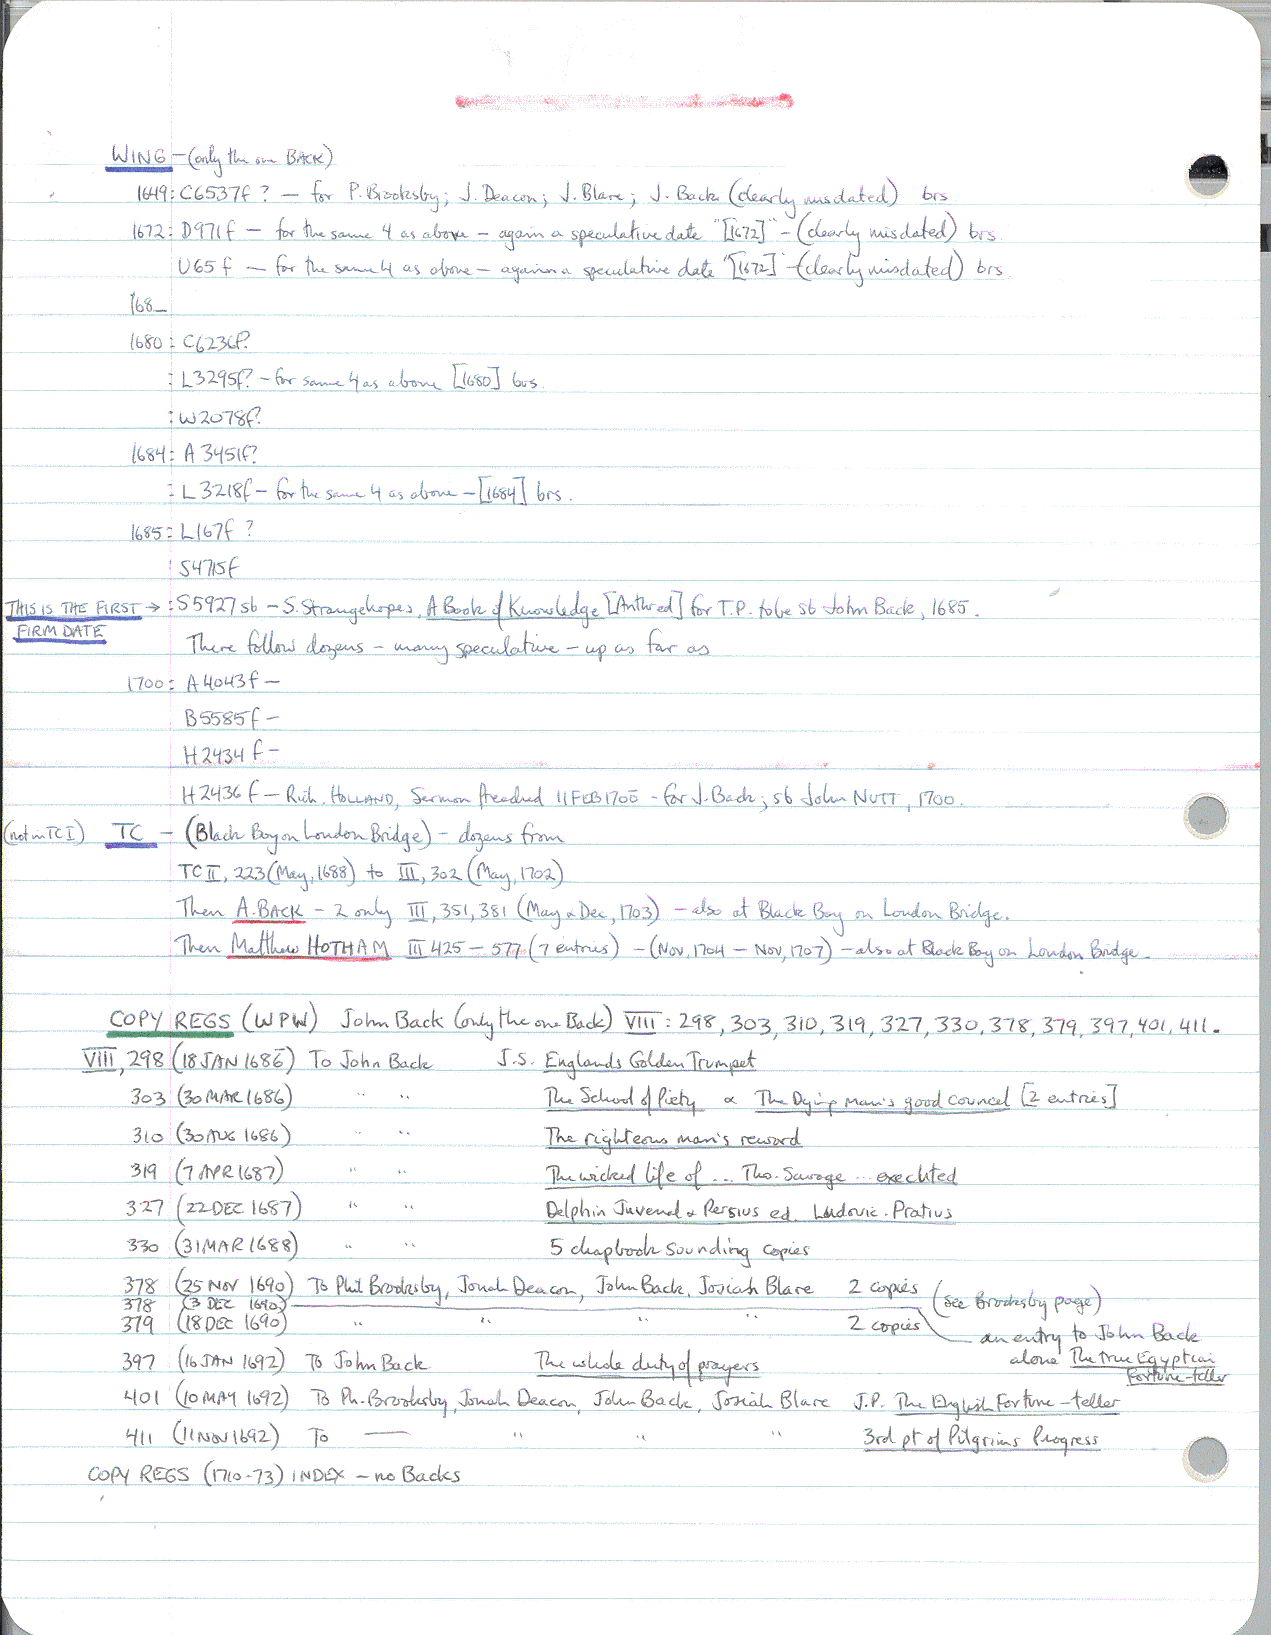 WING – (only the one BACK)
1649: C6537f? – for P. Brooksby; J. Deacon; J. Blare; J. Back (clearly misdated) brs
1672: D971f – for the same 4 as above – again a speculative date "[1672]" – (clearly misdated) brs.
U65f – for the same 4 as above – again a speculative date "[1672]" – (clearly misdated) brs.
168_
1680: C6236f?
: L3295f? – for same 4 as above [1680] brs.
: W2078f?
1684: A3451f?
: L3218f – for the same 4 as above – [1684] brs.
1685: L167f ?
: S4715f
THIS IS THE FIRST → : S5927 sb – S. Strangehopes, A Book of Knowledge [Anthred] for T.P. to be sb John Back, 1685.
FIRM DATE
There follow dozens – many speculative – up as far as
1700: A4043f –
B5585f –
H2434f –
H2436f – Rich. HOLLAND, Sermon Preached 11 FEB 1700 – for J. Back; sb John NUTT, 1700.
(not in TC I) TC – (Black Boy on London Bridge) – dozens from
TC II, 223 (May, 1688) to III, 302 (May, 1702)
Then A. BACK – 2 only III, 351, 381 (May & Dec, 1703) – also at Black Boy on London Bridge.
Then Matthew HOTHAM III 425 – 577 (7 entries) – (Nov, 1704 – Nov, 1707) – also at Black Boy on London Bridge.
COPY REGS (WPW) John Back (only the one Back) VIII: 298, 303, 310, 319, 327, 330, 378, 379, 397, 401, 411.
VIII, 298 (18 JAN 1686) To John Back J.S. Englands Golden Trumpet
303 (30 MAR 1686) " " The School of Piety & The Dying man's good councel [2 entries]
310 (30 AUG 1686) " " The righteous man's reward
319 (7 APR 1687) " " The wicked life of ... Tho. Savage ... executed
327 (22 DEC 1687) " " Delphin Juvenal & Persius ed. Ludovic. Pratius
330 (31 MAR 1688) " " 5 chapbook sounding copies
378 (25 NOV 1690) To Phil Brooksby, Jonah Deacon, John Back, Josiah Blare 2 copies (see Brooksby page)
378 (3 DEC 1690)
379 (18 DEC 1690) " " " " 2 copies
an entry to John Back
alone The true Egyptian
Fortune-teller
397 (16 JAN 1692) To John Back The whole duty of prayers
401 (10 MAY 1692) To Ph. Brooksby, Jonah Deacon, John Back, Josiah Blare J.P. The English Fortune-teller
411 (11 NOV 1692) To — " " " 3rd pt of Pilgrims Progress
COPY REGS (1710-73) INDEX – no Backs